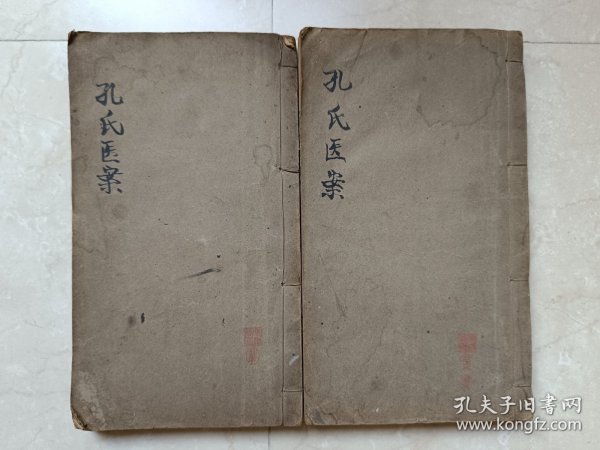 孔氏医案
孔氏医案
孔夫子旧書网
www.kongfz.com